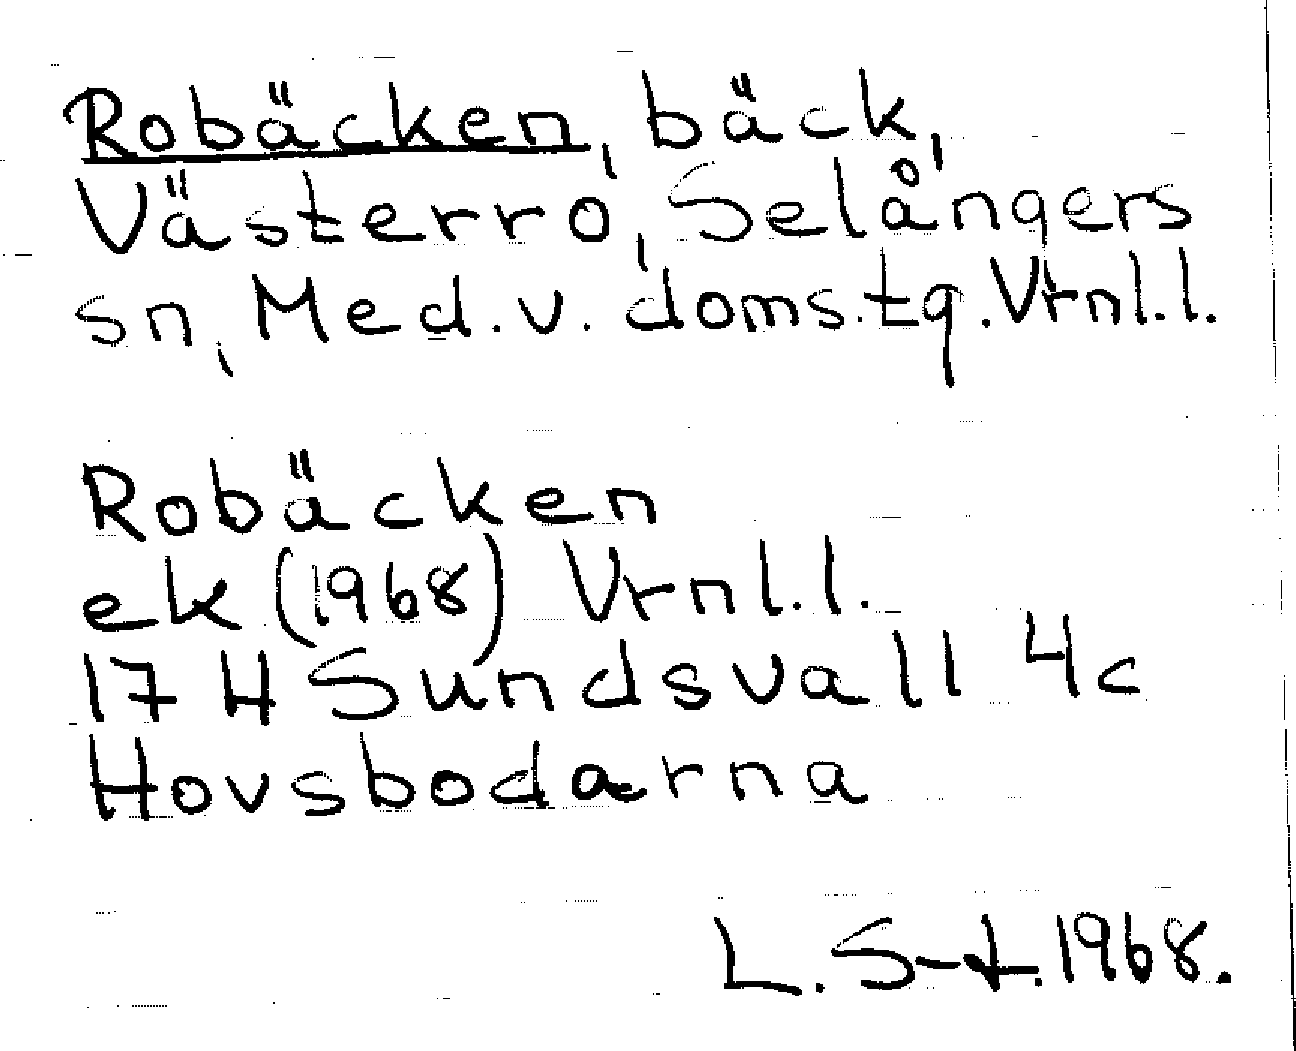 Robäcken, bäck,
Västerro, Selångers
sn, Med. v. doms.tg. Vrnl.l.
Robäcken
ek (1968) Vrnl.l.
17 H Sundsvall 4c
Hovsbodarna
L. S-t. 1968.